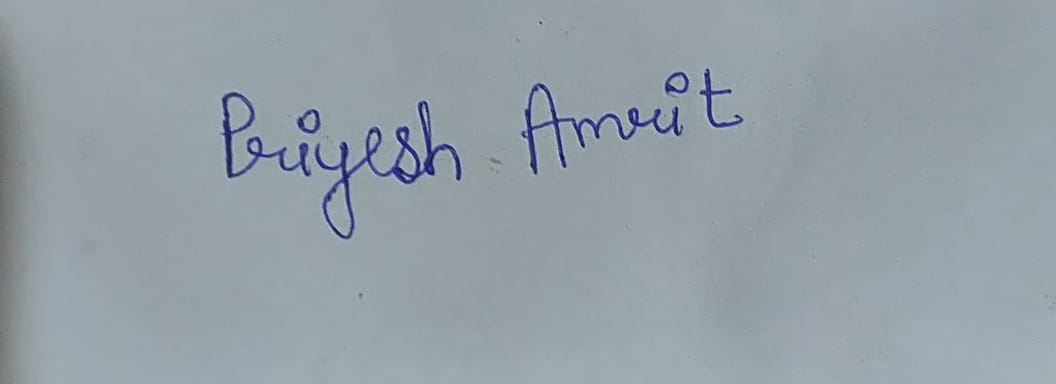 Priyesh Amrit